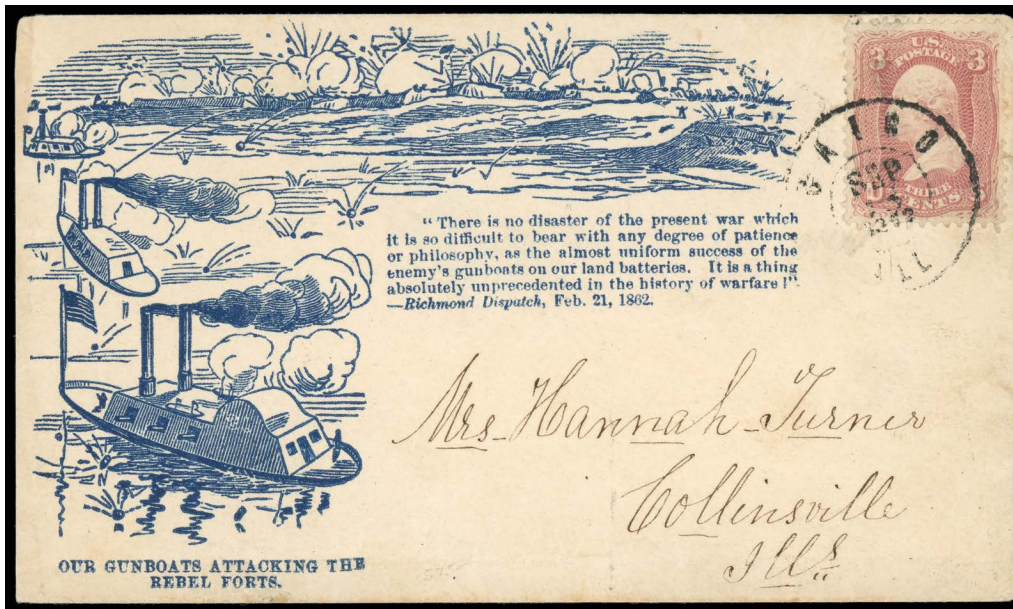 U.S.
POSTAGE
3 3
THREE
CENTS
CAIRO
SEP
ILL
“There is no disaster of the present war which
it is so difficult to bear with any degree of patience
or philosophy, as the almost uniform success of the
enemy's gunboats on our land batteries. It is a thing
absolutely unprecedented in the history of warfare!”
—Richmond Dispatch, Feb. 21, 1862.
Mrs Hannah Turner
Collinsville
Ills
OUR GUNBOATS ATTACKING THE
REBEL FORTS.